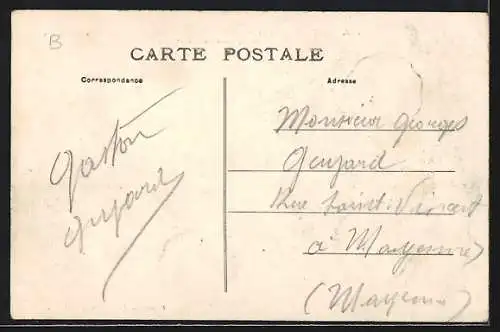 B
CARTE POSTALE
Correspondance
Adresse
Gaston
Monsieur Georges
Rue Saint Vincent
à Mayenne
(Mayenne)